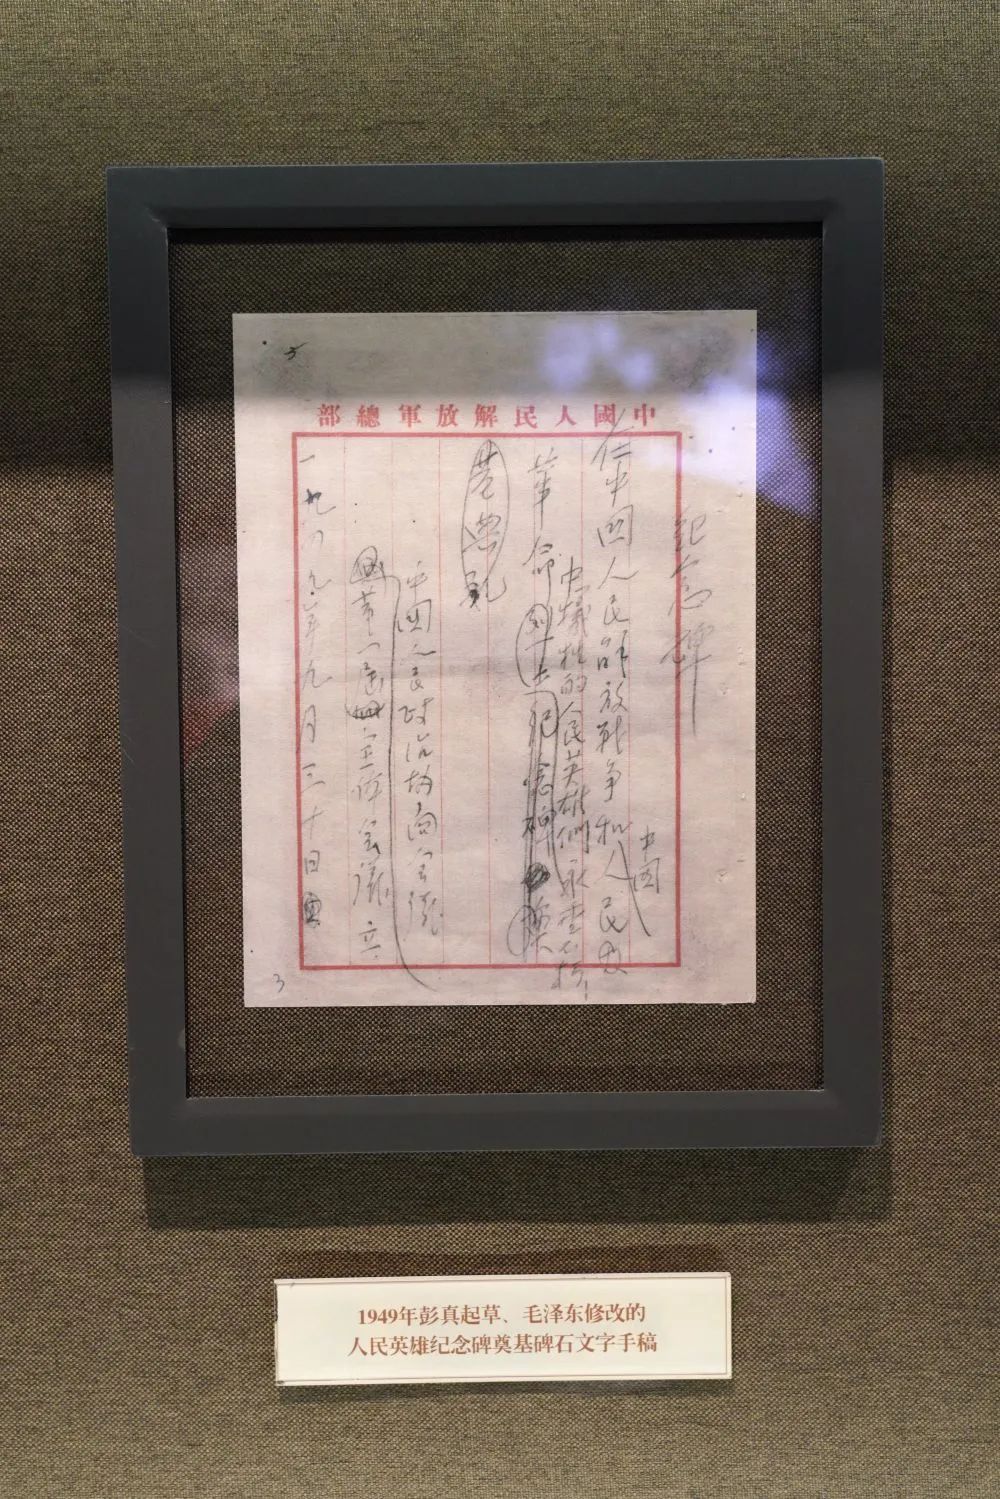 中國人民解放軍總部
紀念碑
中国
在中國人民解放战争和人民
中犧牲的人民英雄們永垂不朽！
革命烈士紀念碑
中國人民政治协商会議
第一届全体会議立
一九四九年九月三十日
3
1949年彭真起草、毛泽东修改的
人民英雄纪念碑奠基碑石文字手稿